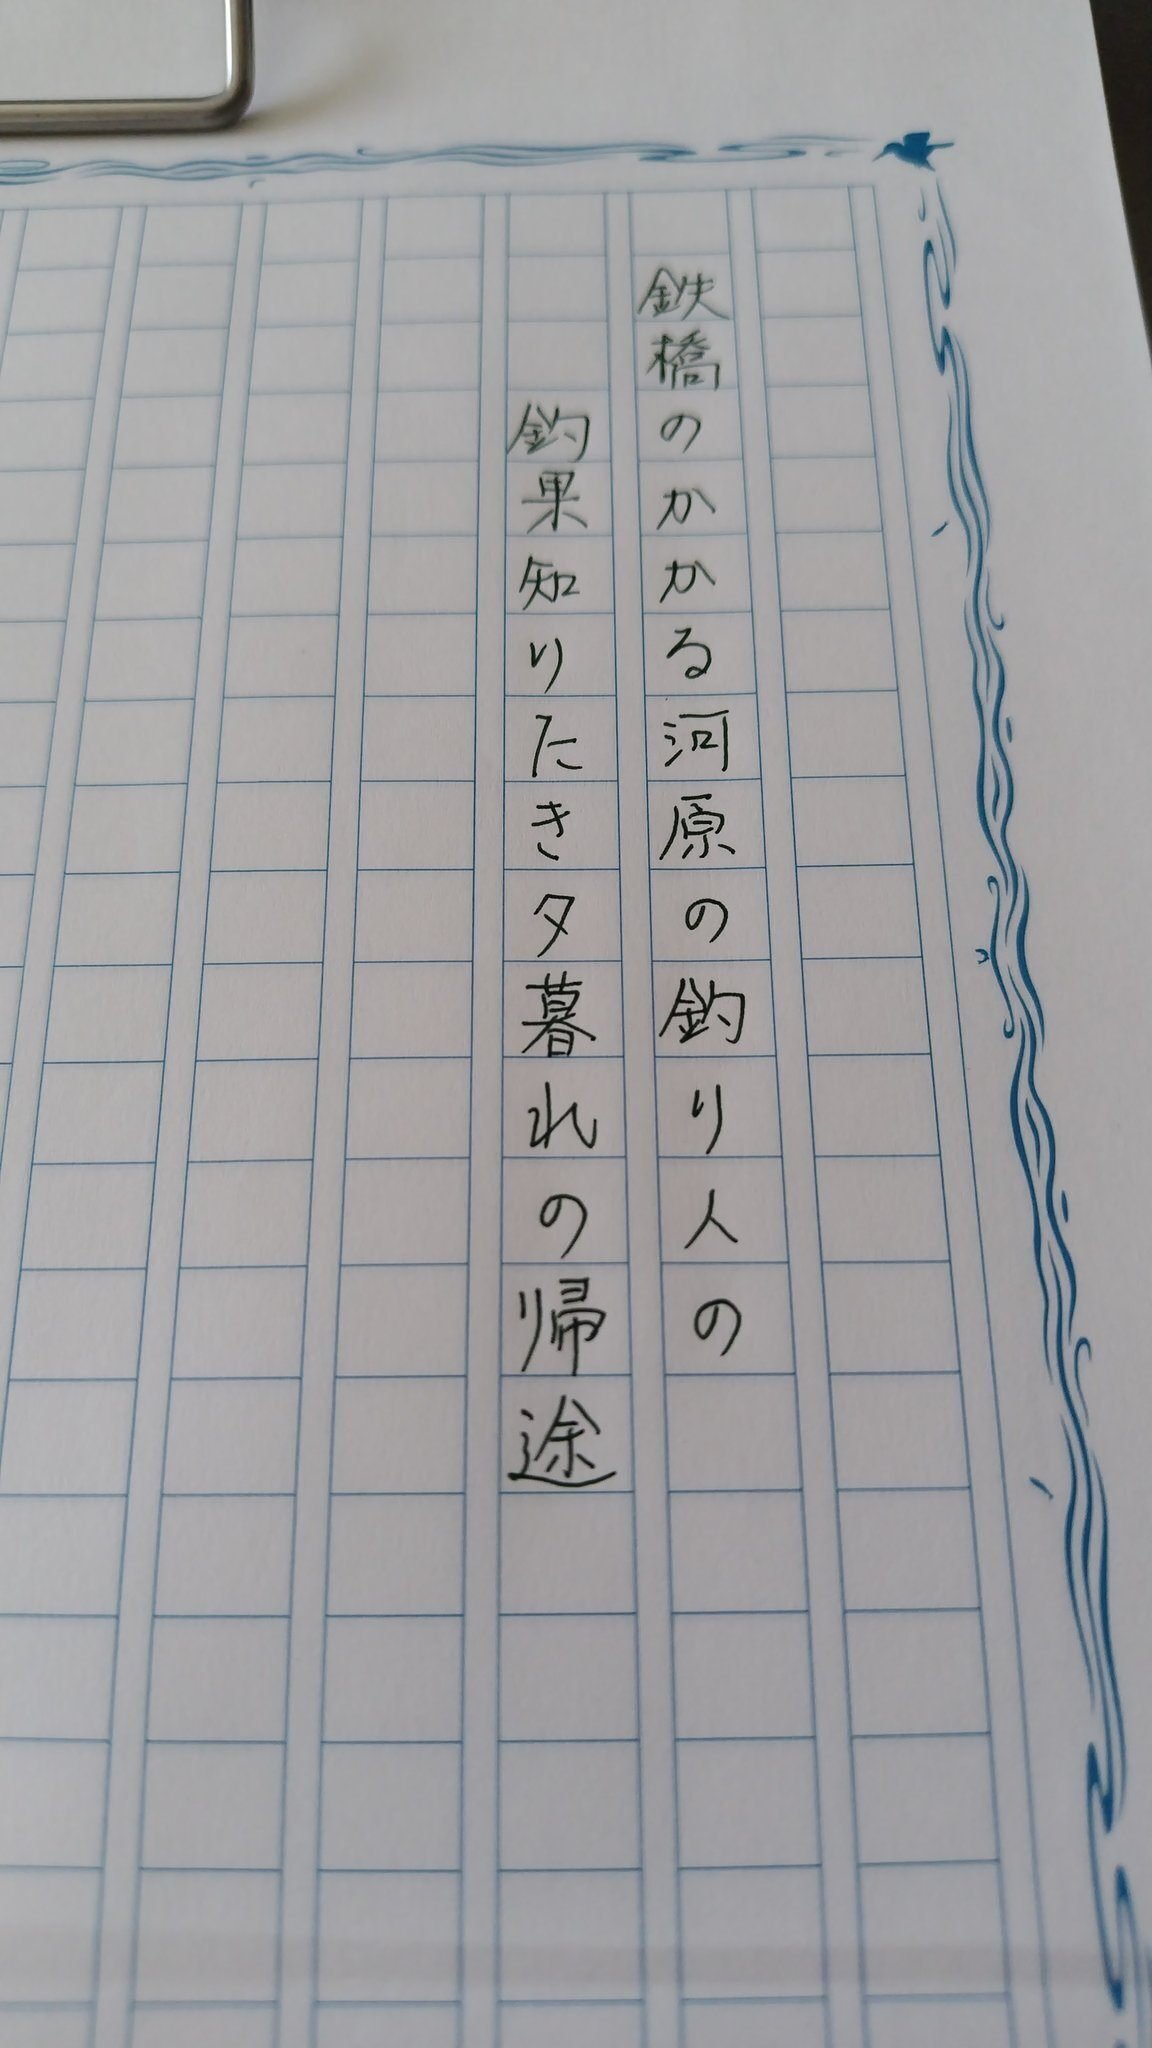 鉄橋のかかる河原の釣り人の
釣果知りたき夕暮れの帰途